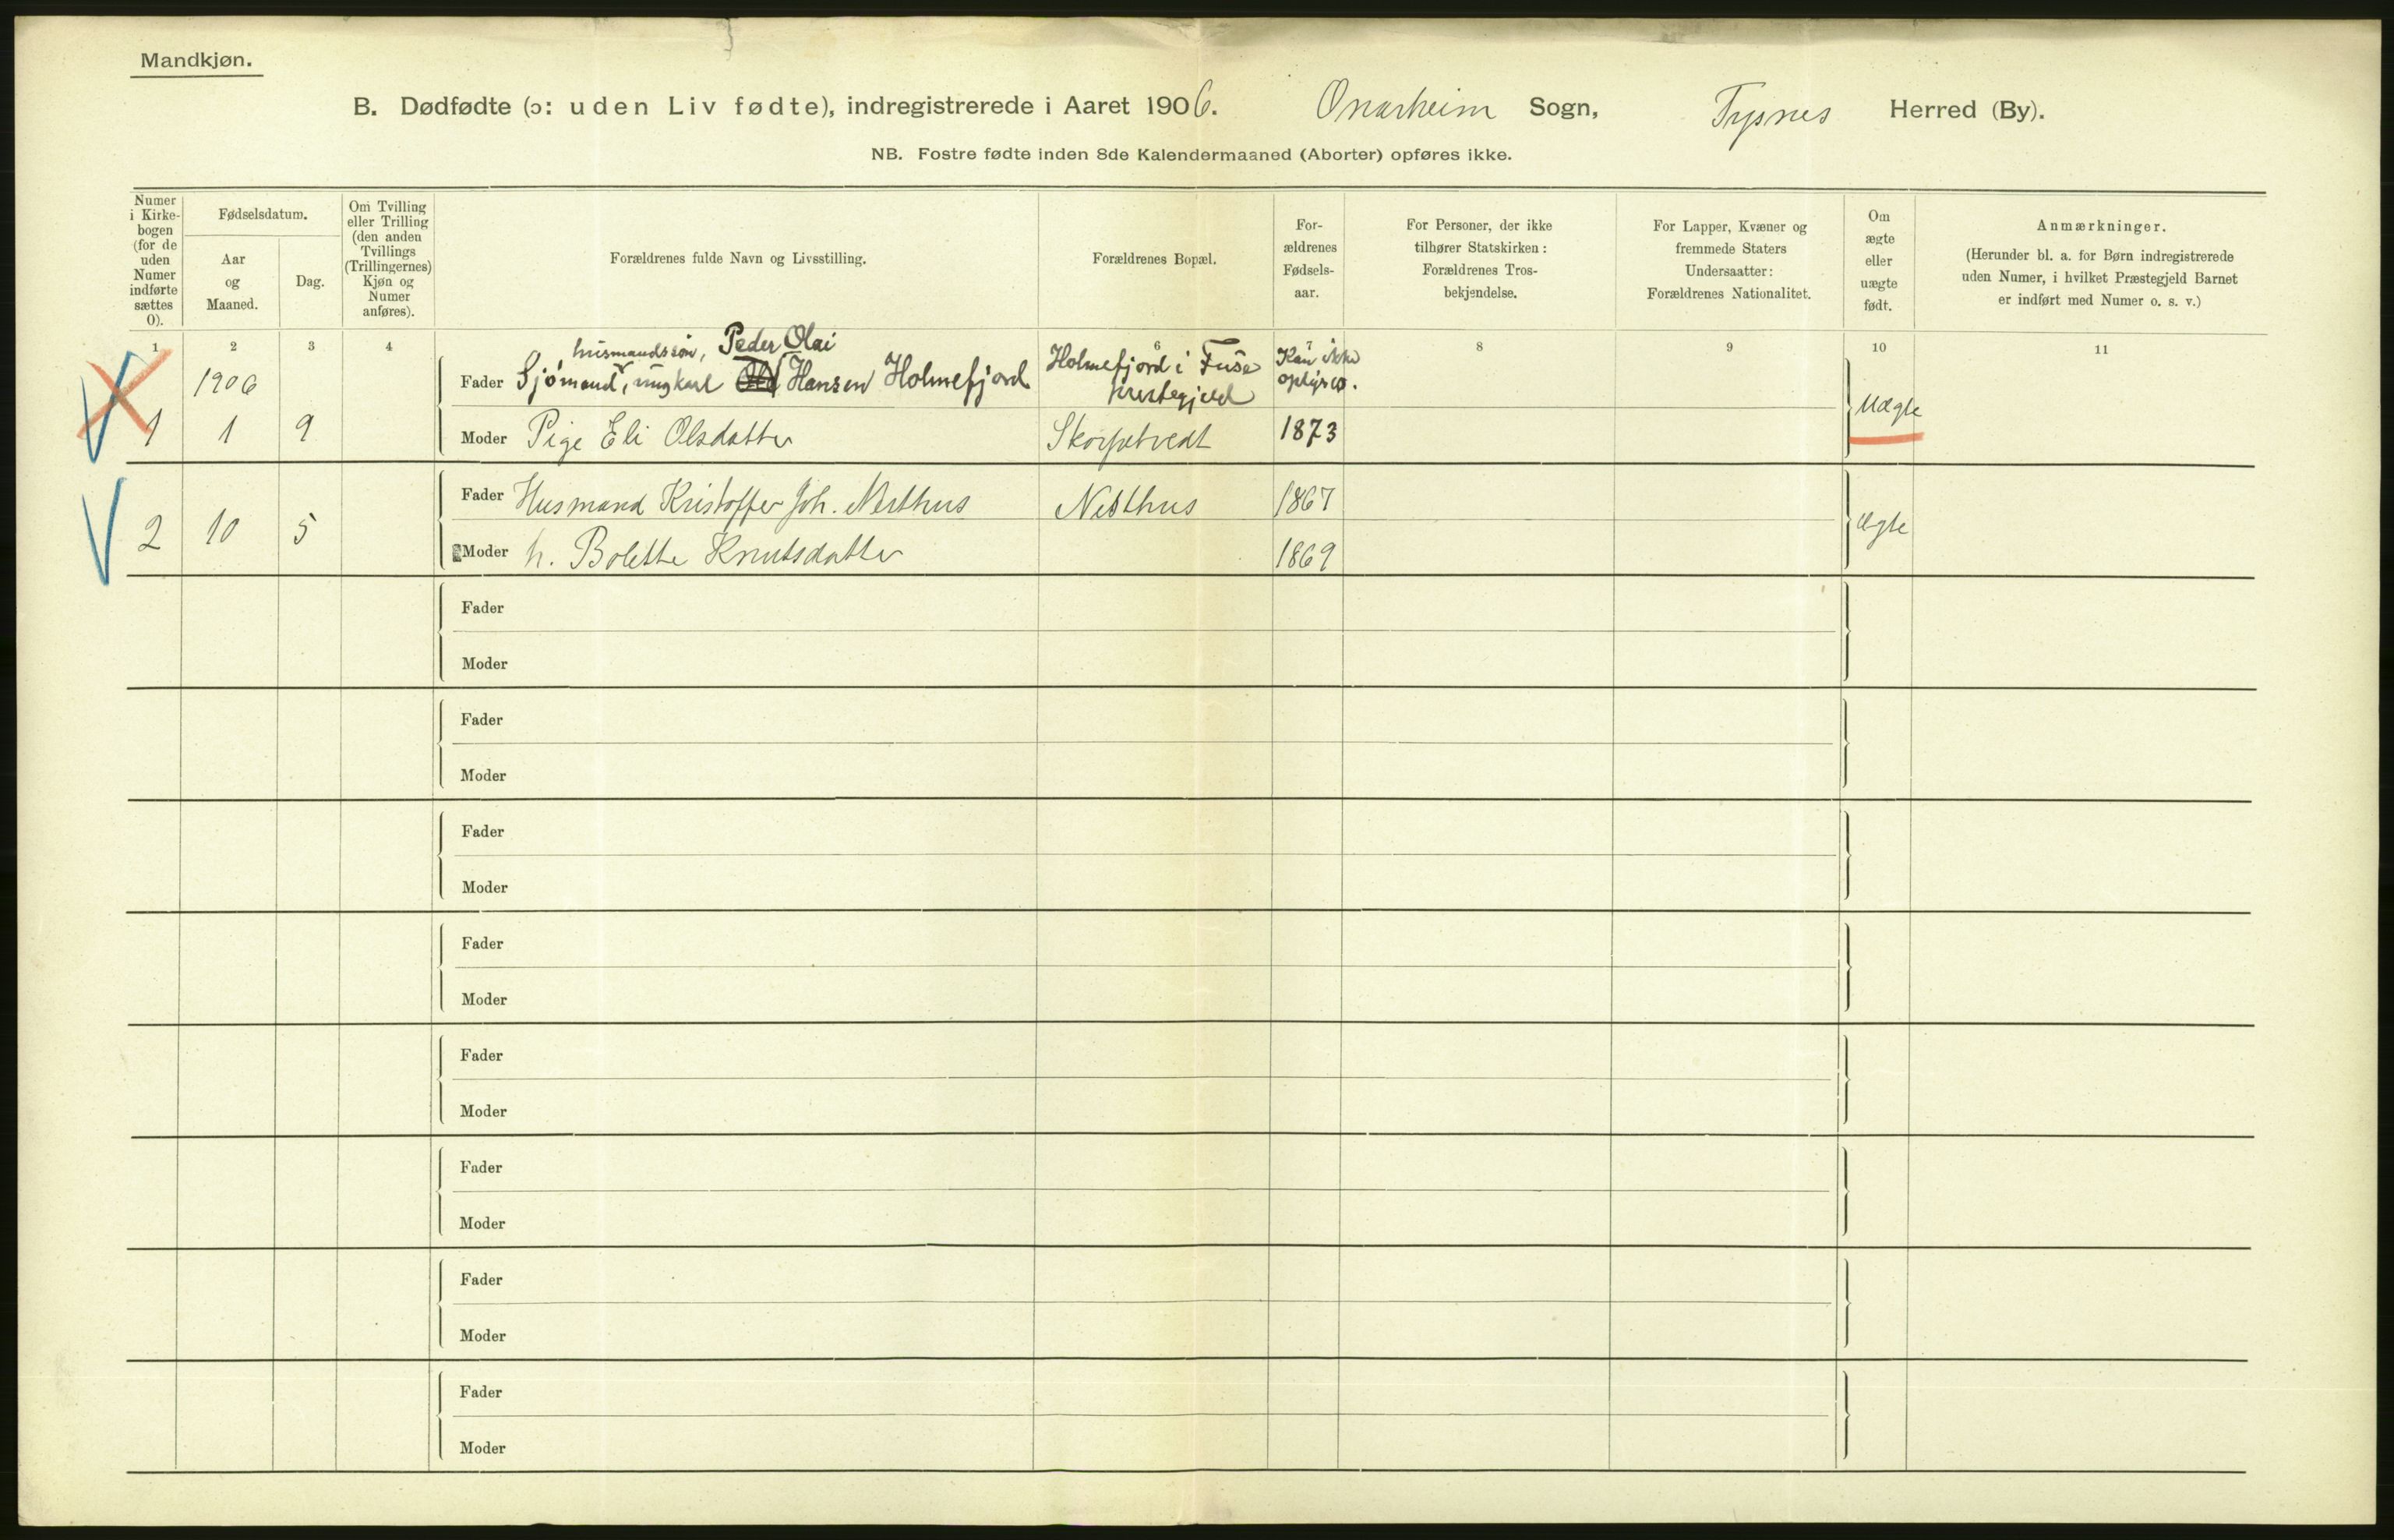 Mandkjøn.
B. Dødfødte (ɔ: uden Liv fødte), indregistrerede i Aaret 1906. Onarheim Sogn, Tysnes Herred (By).
NB. Fostre fødte inden 8de Kalendermaaned (Aborter) opføres ikke.
Numer i Kirke-bogen (for de uden Numer indførte sættes 0).
Fødselsdatum.
Aar og Maaned.
Dag.
Om Tvilling eller Trilling (den anden Tvillings (Trillingernes) Kjøn og Numer anføres).
Forældrenes fulde Navn og Livsstilling.
Forældrenes Bopæl.
For-ældrenes Fødsels-aar.
For Personer, der ikke tilhører Statskirken: Forældrenes Tros-bekjendelse.
For Lapper, Kvæner og fremmede Staters Undersaatter: Forældrenes Nationalitet.
Om ægte eller uægte født.
Anmærkninger.
(Herunder bl. a. for Børn indregistrerede uden Numer, i hvilket Præstegjeld Barnet er indført med Numer o. s. v.)
1 2 3 4 6 7 8 9 10 11
husmandssøn, Peder Olai
1906 Fader Sjømand, ungkarl Hansen Holmefjord Holmefjord i Fuse Kan ikke
prestegjeld oplyses.
1 1 9 Moder Pige Eli Olsdatter Skorpetvedt 1873 Uægte
Fader Husmand Kristoffer Joh. Nesthus Nesthus 1867
2 10 5 Moder h. Bolette Knutsdatter 1869 Ægte
Fader
Moder
Fader
Moder
Fader
Moder
Fader
Moder
Fader
Moder
Fader
Moder
Fader
Moder
Fader
Moder